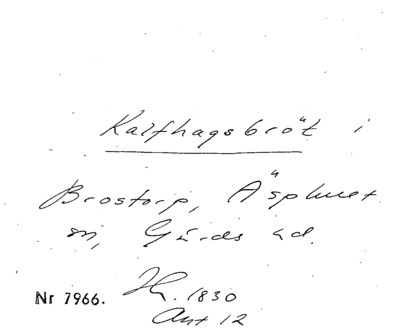 Kalfhagsbröt i
Brostorp, Äsphult
sn, Gärds hd.
Nr 7966. 1830
Akt 12